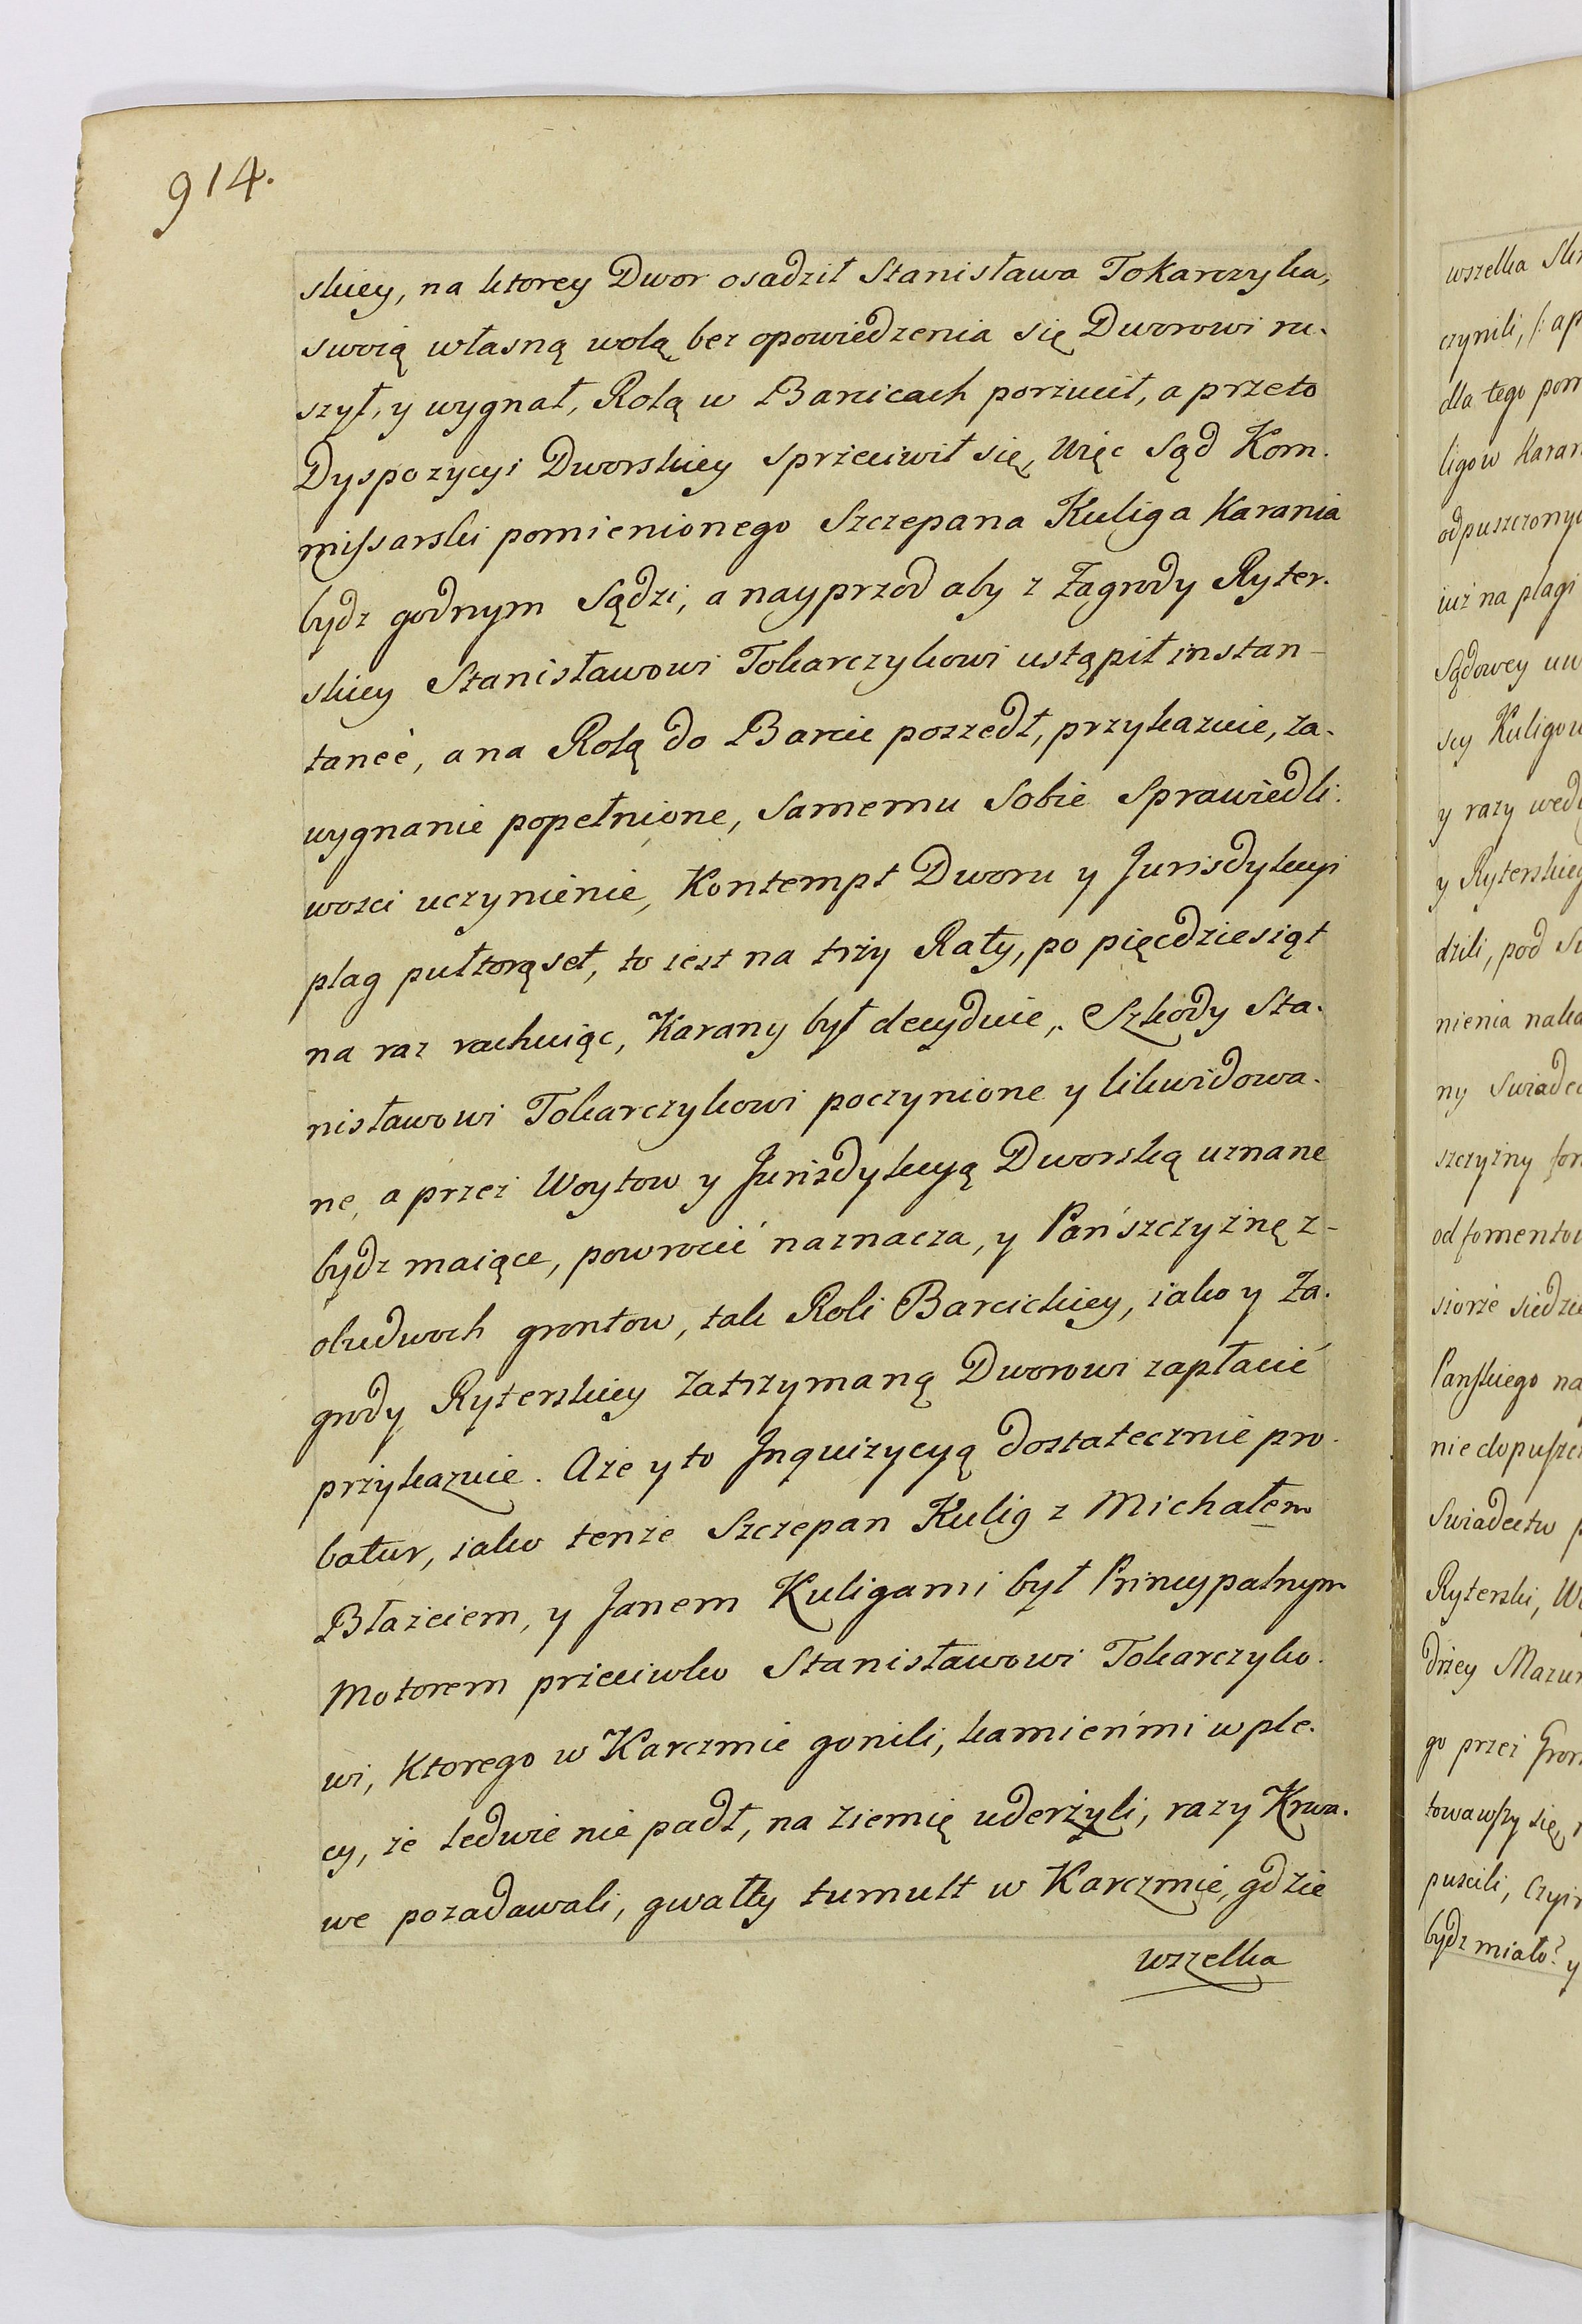 914.
skiey, na ktorey Dwor osadził Stanisława Tokarczyka,
swoią własną wolą bez opowiedzenia się Dworowi ru-
szył, y wygnał, Rolą w Barcicach porzucił, a przeto
Dyspozycyi Dworskiey sprzeciwił się, Więc Sąd Kom-
missarski pomienionego Szczepana Kuliga Karania
bydz godnym Sądzi, a nayprzod aby z Zagrody Ryter-
skiey Stanisławowi Tokarczykowi ustąpił instan-
taneé, a na Rolą do Barcic poszedł, przykazuie, za-
wygnanie popełnione, Samemu Sobie Sprawiedli-
wosci uczynienie, Kontempt Dworu y Jurisdykcyi
plag pułtorąset, to iest na trzy Raty, po pięcdziesiąt
na raz rachuiąc, Karany był decyduie, Szkody Sta-
nisławowi Tokarczykowi poczynione y likwidowa-
ne, a przez Woytow y Jurisdykcyą Dworską uznane
bydz maiące, powrocić naznacza, y Pańszczyznę z-
obudwoch grontow, tak Roli Barcickiey, iako y Za-
grody Ryterskiey zatrzymaną Dworowi zapłacić
przykazuie. Aże y to Inquizycyą dostatecznie pro-
batur, iako tenze Szczepan Kulig z Michałem
Błażeiem, y Janem Kuligami był Princypalnym
Motorem przeciwko Stanisławowi Tokarczyko-
wi, Ktorego w Karczmie gonili, kamieńmi w ple-
cy, że ledwie nie padł, na ziemię uderżyli, razy Krwa-
we pozadawali, gwałty tumult w Karczmie, gdzie
wszelka
wszelka
czynili, /: a
dla tego
ligow
odpuszczony
iuż na plagi
Sądowey
scy
y razy
y Ryterskiey
dzili, pod
nienia
ny
szczyzny
od
siorże
Panskiego na
nie dopuszcz
Swiadectw
Ryterski,
drzey Mazur
go przez
towawszy się,
puscili,
bydz miało? y